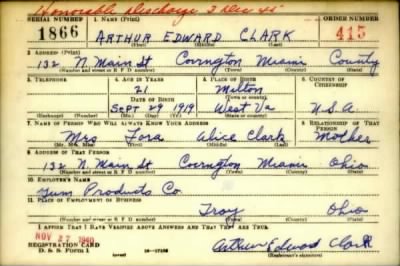 Honorable Discharge 2 Dec 45
SERIAL NUMBER 1. NAME (Print) ORDER NUMBER
1866 ARTHUR EDWARD CLARK 415
(First) (Middle) (Last)
2. ADDRESS (Print)
132 N. Main St Covington Miami County
(Number and street or R. F. D. number) (Town) (County) (State)
3. TELEPHONE 4. AGE IN YEARS 5. PLACE OF BIRTH 6. COUNTRY OF CITIZENSHIP
21 Milton
DATE OF BIRTH (Town or county)
Sept 29 1919 West Va U.S.A.
(Exchange) (Number) (Mo.) (Day) (Yr.) (State or country)
7. NAME OF PERSON WHO WILL ALWAYS KNOW YOUR ADDRESS 8. RELATIONSHIP OF THAT PERSON
Mrs Alice Clark Mother
(Mr., Mrs., Miss) (First) (Middle) (Last)
9. ADDRESS OF THAT PERSON
132 N. Main St Covington Miami Ohio
(Number and street or R. F. D. number) (Town) (County) (State)
10. EMPLOYER'S NAME
Gum Products Co
11. PLACE OF EMPLOYMENT OR BUSINESS
Troy Ohio
(Number and street or R. F. D. number) (Town) (County) (State)
I AFFIRM THAT I HAVE VERIFIED ABOVE ANSWERS AND THAT THEY ARE TRUE.
NOV 27 1940
REGISTRATION CARD
D. S. S. Form 1 Arthur Edward Clark
(Registrant's signature)